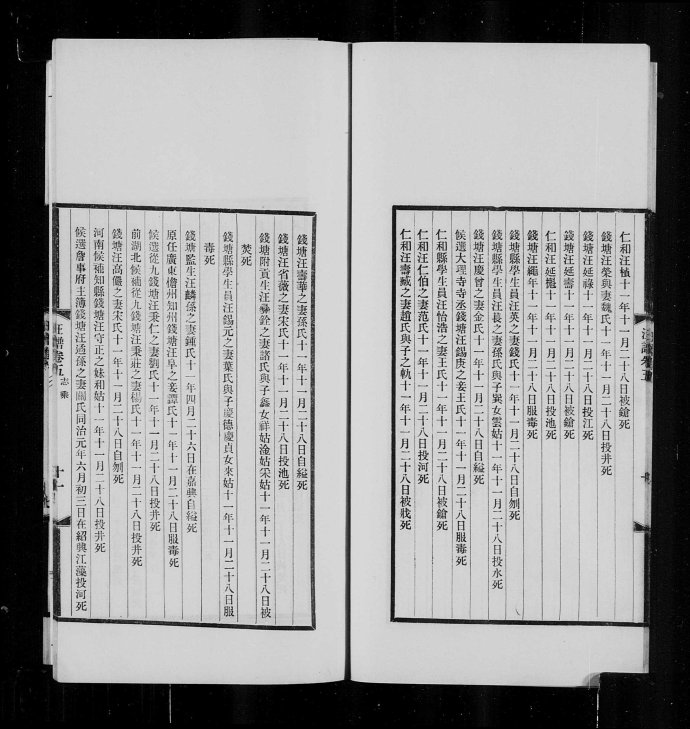 仁和汪楨十一年十一月二十八日被鎗死
錢塘汪榮與妻魏氏十一年十一月二十八日投井死
錢塘汪延祿十一年十一月二十八日投江死
錢塘汪延壽十一年十一月二十八日被鎗死
仁和汪延 十一年十一月二十八日投池死
錢塘汪繩年十一年十一月二十八日服毒死
錢塘縣學生員汪英之妻錢氏十一年十一月二十八日自刎死
錢塘縣學生員汪長之妻孫氏與子巽女雲姑十一年十一月二十八日投水死
錢塘汪慶曾之妻金氏十一年十一月二十八日自縊死
候選大理寺寺丞錢塘汪錫庚之妾王氏十一年十一月二十八日服毒死
仁和縣學生員汪怡浩之妻王氏十一年十一月二十八日被鎗死
仁和汪仁伯之妻范氏十一年十一月二十八日投河死
仁和汪壽臧之妻趙氏與子之軌十一年十一月二十八日被戕死
錢塘汪壽華之妻孫氏十一年十一月二十八日自縊死
錢塘汪省薇之妻宋氏十一年十一月二十八日投池死
錢塘附貢生汪 銓之妻諸氏與子鑫女祥姑淦姑采姑十一年十一月二十八日被
焚死
錢塘縣學生員汪錫元之妻葉氏與子慶德慶貞女來姑十一年十一月二十八日服
毒死
錢塘監生汪麟孫之妻鍾氏十一年四月二十六日在嘉興自縊死
原任廣東儋州知州錢塘汪阜之妾譚氏十一年十一月二十八日服毒死
候選從九錢塘汪秉仁之妻劉氏十一年十一月二十八日投井死
前湖北候補從九錢塘汪秉莊之妻楊氏十一年十一月二十八日投井死
錢塘汪高儼之妻宋氏十一年十一月二十八日自刎死
河南候補知縣錢塘汪守正之妹和姑十一年十一月二十八日投井死
候選詹事府主簿錢塘汪适孫之妻關氏同治元年六月初三日在紹興江藻投河死
汪譜卷五
志乘
十一